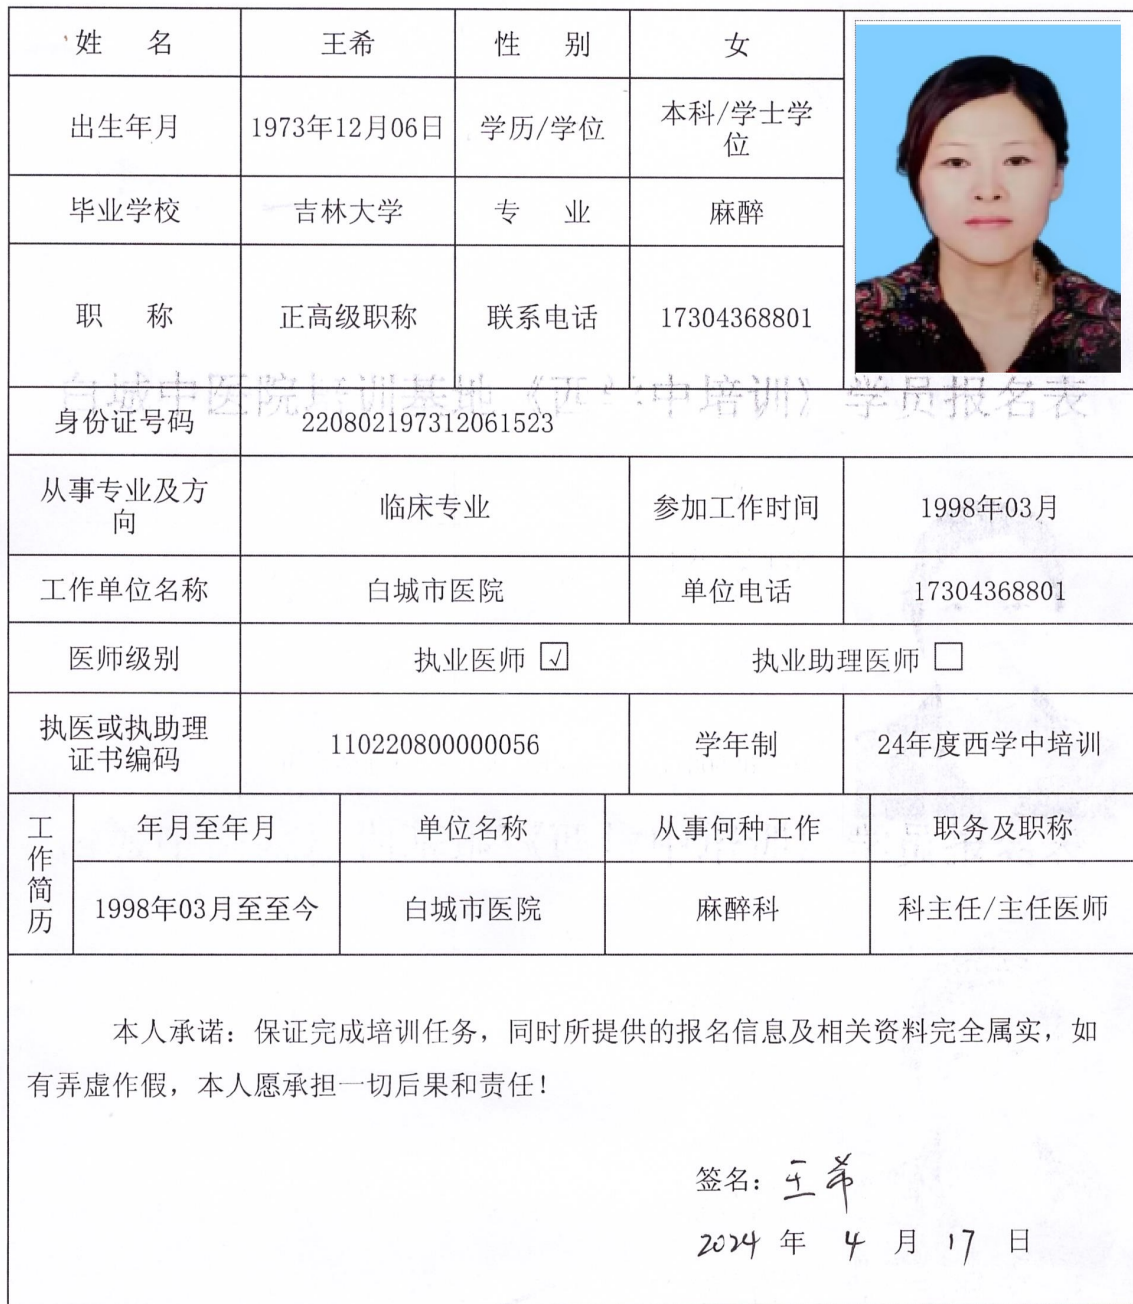 姓 名 王希 性 别 女
出生年月 1973年12月06日 学历/学位 本科/学士学
位
毕业学校 吉林大学 专 业 麻醉
职 称 正高级职称 联系电话 17304368801
白城中医院培训基地《西学中培训》学员报名表
身份证号码 220802197312061523
从事专业及方
向 临床专业 参加工作时间 1998年03月
工作单位名称 白城市医院 单位电话 17304368801
医师级别 执业医师 ☑ 执业助理医师 □
执医或执助理
证书编码 110220800000056 学年制 24年度西学中培训
工作简历 年月至年月 单位名称 从事何种工作 职务及职称
1998年03月至至今 白城市医院 麻醉科 科主任/主任医师
本人承诺：保证完成培训任务，同时所提供的报名信息及相关资料完全属实，如
有弄虚作假，本人愿承担一切后果和责任！
签名：王希
2024 年 4 月 17 日